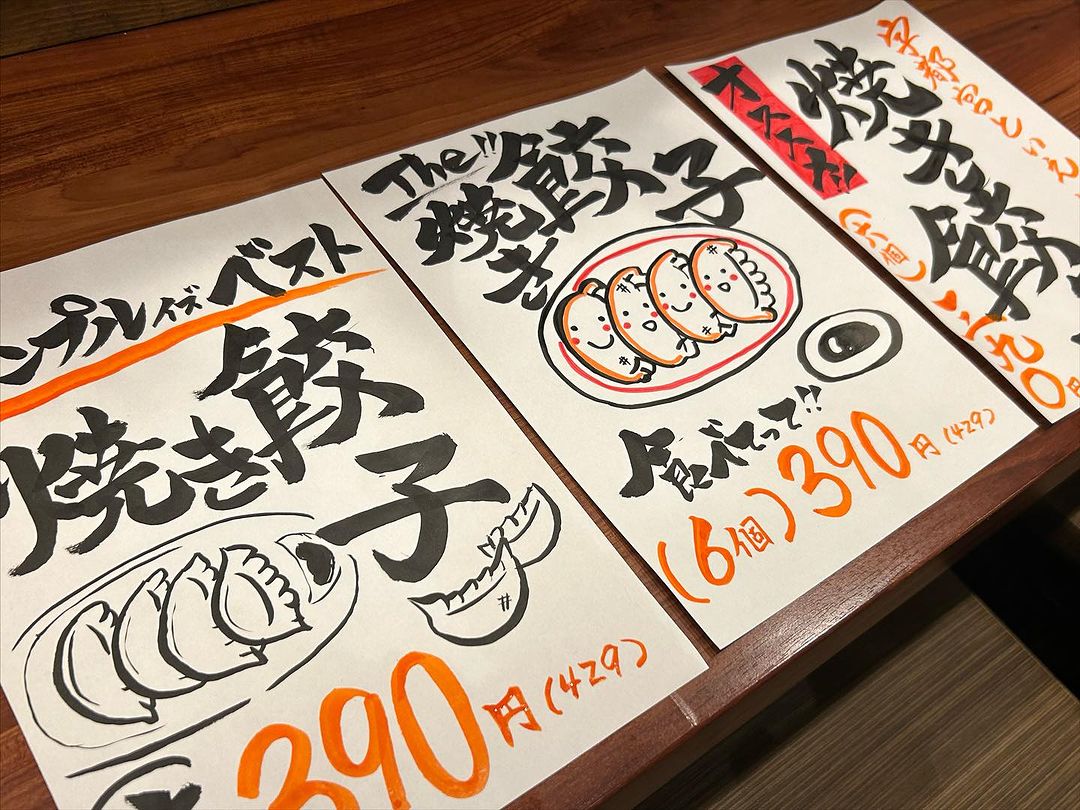 ンプルイズベスト
焼き餃子
390円(429)
The!!
焼き餃子
食べてって!!
(6個)390円(429)
宇都宮といえ
オススメ!!
焼き餃
(六個)
三九〇円